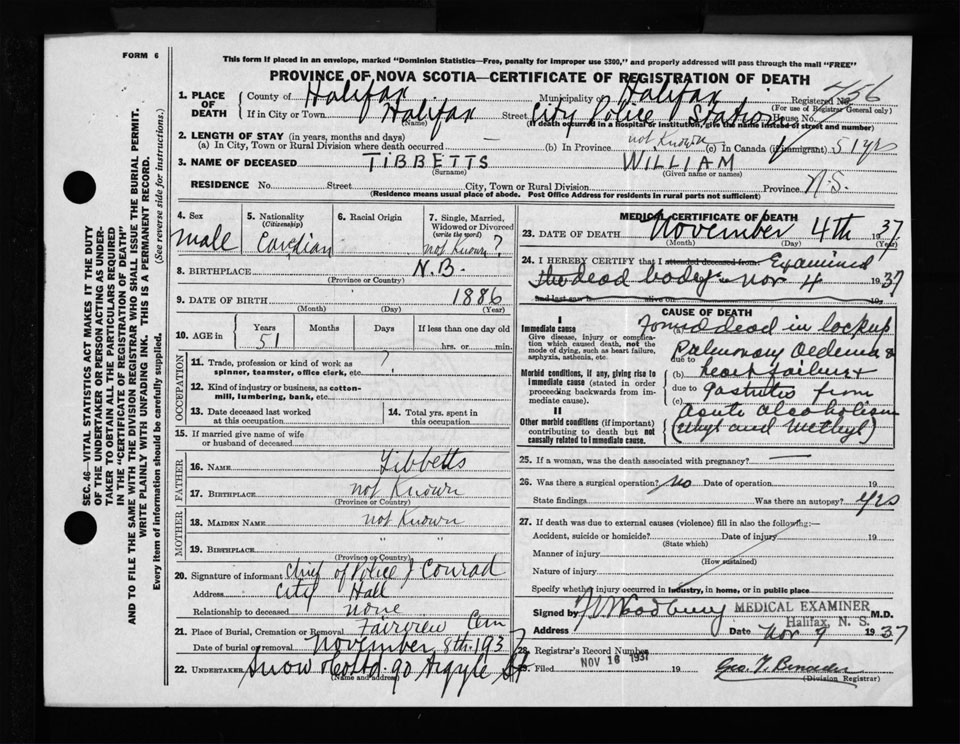 FORM 6
This form if placed in an envelope, marked "Dominion Statistics—Free, penalty for improper use $300," and properly addressed will pass through the mail "FREE"
PROVINCE OF NOVA SCOTIA—CERTIFICATE OF REGISTRATION OF DEATH
1. PLACE OF DEATH
County of Halifax Municipality of Halifax Registered No. 456
(For use of Registrar General only)
If in City or Town Halifax Street City Police Station House No.
(Name) (If death occurred in a hospital or institution, give the name instead of street and number)
2. LENGTH OF STAY (in years, months and days)
(a) In City, Town or Rural Division where death occurred — (b) In Province not Known (c) In Canada (if immigrant) 51 yrs
3. NAME OF DECEASED TIBBETTS WILLIAM
(Surname) (Given name or names)
RESIDENCE No. Street City, Town or Rural Division Province N.S.
(Residence means usual place of abode. Post Office Address for residents in rural parts not sufficient)
4. Sex
male
5. Nationality
(Citizenship)
6. Racial Origin
7. Single, Married, Widowed or Divorced
(write the word)
not Known ?
8. BIRTHPLACE N.B.
(Province or Country)
9. DATE OF BIRTH 1886
(Month) (Day) (Year)
10. AGE in Years Months Days If less than one day old
51 hrs. or min.
OCCUPATION
11. Trade, profession or kind of work as spinner, teamster, office clerk, etc. ?
12. Kind of industry or business, as cotton-mill, lumbering, bank, etc.
13. Date deceased last worked at this occupation
14. Total yrs. spent in this occupation
15. If married give name of wife or husband of deceased
FATHER
16. NAME Tibbetts
17. BIRTHPLACE not Known
(Province or Country)
MOTHER
18. MAIDEN NAME not Known
19. BIRTHPLACE " "
(Province or Country)
20. Signature of informant Chief of Police J Conrad
Address City Hall
Relationship to deceased none
21. Place of Burial, Cremation or Removal Fairview Cem
Date of burial or removal November 8th 1937
22. UNDERTAKER Snow & Co Ltd. 90 Argyle St
(Name and address)
MEDICAL CERTIFICATE OF DEATH
23. DATE OF DEATH November 4th 1937
(Month) (Day) (Year)
24. I HEREBY CERTIFY that I attended deceased from Examined
the dead body Nov 4 1937
and last saw h alive on 19
CAUSE OF DEATH
I
Immediate cause
Give disease, injury or complication which caused death, not the mode of dying, such as heart failure, asphyxia, asthenia, etc.
Morbid conditions, if any, giving rise to immediate cause (stated in order proceeding backwards from immediate cause).
II
Other morbid conditions (if important) contributing to death but not causally related to immediate cause.
(a) Found dead in lockup
due to Pulmonary Oedema &
(b) heart failure &
due to gastritis from
(c) acute alcoholism
25. If a woman, was the death associated with pregnancy? —
26. Was there a surgical operation? No Date of operation 19
State findings Was there an autopsy? Yes
27. If death was due to external causes (violence) fill in also the following:—
Accident, suicide or homicide? Date of injury 19
(State which)
Manner of injury
(How sustained)
Nature of injury
Specify whether injury occurred in industry, in home, or in public place
Signed by MEDICAL EXAMINER M.D.
Halifax, N. S.
Address Date Nov 9 1937
28. Registrar's Record Number
Filed NOV 16 1937 19
(Division Registrar)
SEC. 46—VITAL STATISTICS ACT MAKES IT THE DUTY OF THE UNDERTAKER OR PERSON ACTING AS UNDERTAKER TO OBTAIN ALL THE PARTICULARS REQUIRED IN THE "CERTIFICATE OF REGISTRATION OF DEATH"
AND TO FILE THE SAME WITH THE DIVISION REGISTRAR WHO SHALL ISSUE THE BURIAL PERMIT.
WRITE PLAINLY WITH UNFADING INK. THIS IS A PERMANENT RECORD.
Every item of information should be carefully supplied. (See reverse side for instructions.)